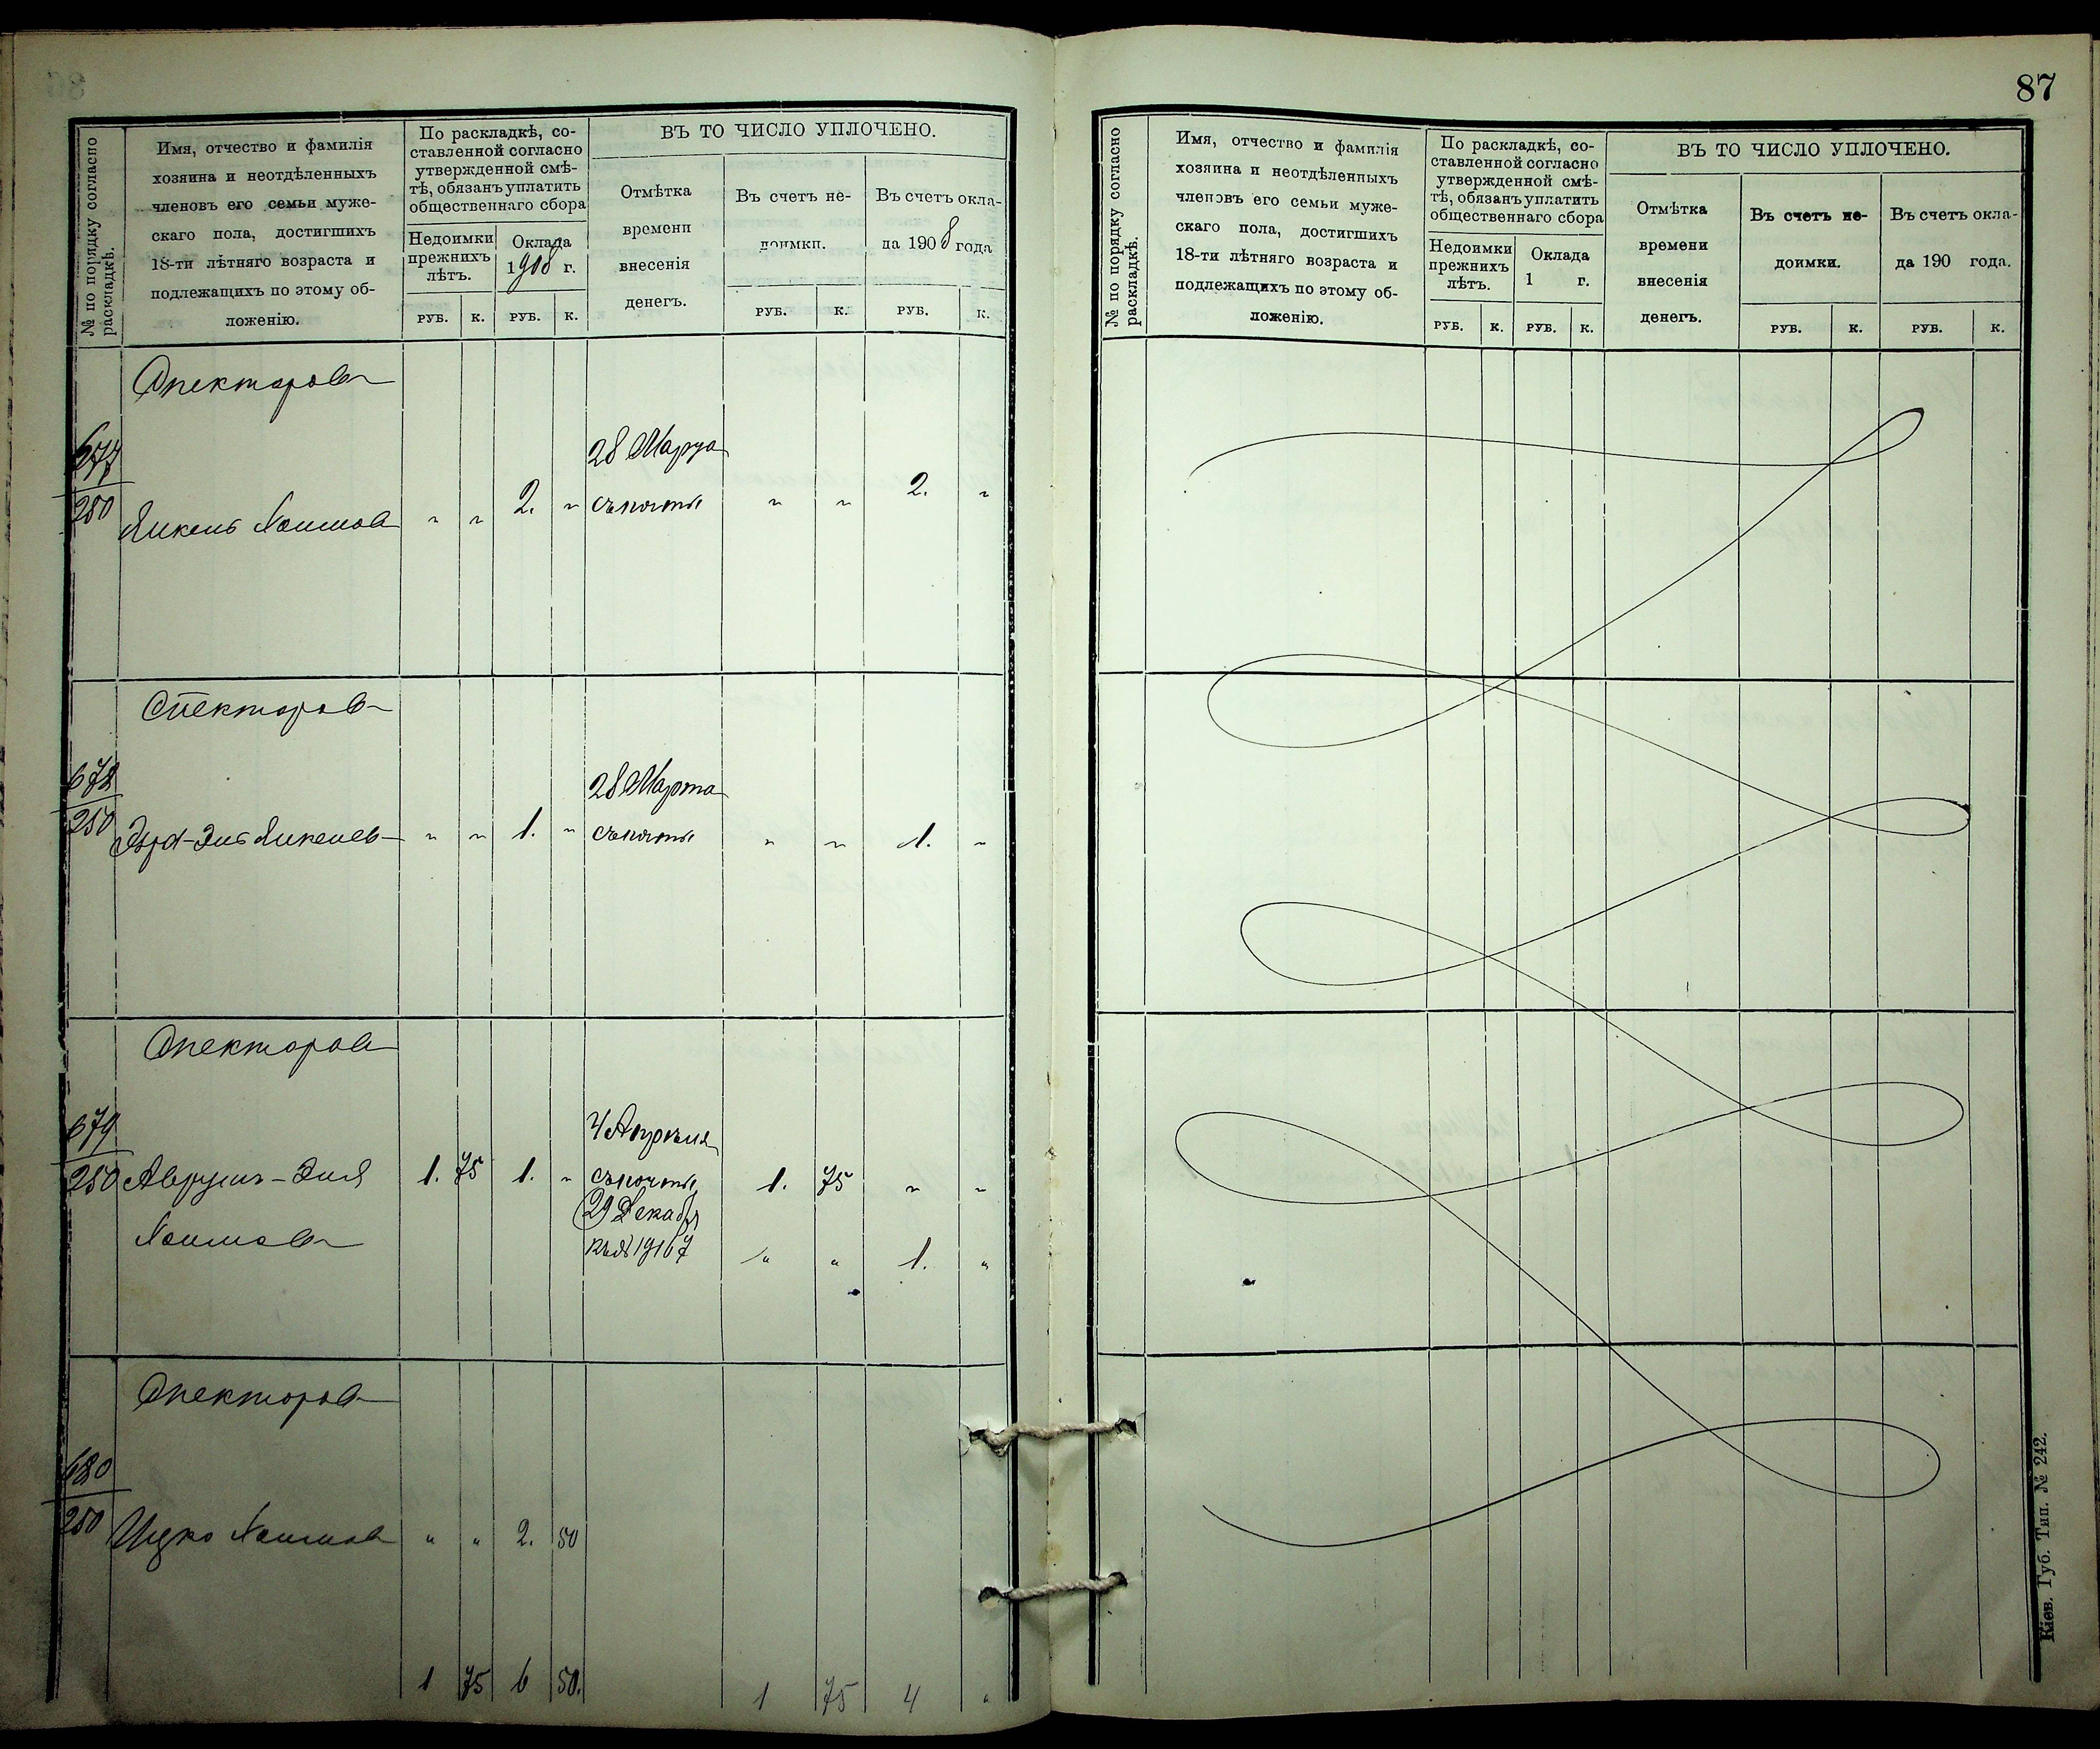 87
№ по порядку согласно
раскладкѣ.
Имя, отчество и фамилія
хозяина и неотдѣленныхъ
членовъ его семьи муже-
скаго пола, достигшихъ
18-ти лѣтняго возраста и
подлежащихъ по этому об-
ложенію.
По раскладкѣ, со-
ставленной согласно
утвержденной смѣ-
тѣ, обязанъ уплатить
общественнаго сбора
Недоимки
прежнихъ
лѣтъ.
Оклада
1908 г.
ВЪ ТО ЧИСЛО УПЛОЧЕНО.
Отмѣтка
времени
внесенія
денегъ.
Въ счетъ не-
доимки.
Въ счетъ окла-
да 1908 года
РУБ. К. РУБ. К. РУБ. К. РУБ. К.
Спекторов
677
250
Хаимов " " 2. "
28 Марта
" " 2. "
Спекторов
678
250
" " 1. "
28 Марта
" " 1. "
Спекторов
679
250 Аврумъ-Эля 1. 75 1. "
Хаимов
4 Апрѣля
1. 75 " "
29 Декабря
1916 " " 1. "
Спекторов
680
250
Ицко Хаимов " " 2. 50
1 75 6 50. 1 75 4 "
№ по порядку согласно
раскладкѣ.
Имя, отчество и фамилія
хозяина и неотдѣленныхъ
членовъ его семьи муже-
скаго пола, достигшихъ
18-ти лѣтняго возраста и
подлежащихъ по этому об-
ложенію.
По раскладкѣ, со-
ставленной согласно
утвержденной смѣ-
тѣ, обязанъ уплатить
общественнаго сбора
Недоимки
прежнихъ
лѣтъ.
Оклада
1 г.
ВЪ ТО ЧИСЛО УПЛОЧЕНО.
Отмѣтка
времени
внесенія
денегъ.
Въ счетъ не-
доимки.
Въ счетъ окла-
да 190 года.
РУБ. К. РУБ. К. РУБ. К. РУБ. К.
Кіев. Губ. Тип. № 242.